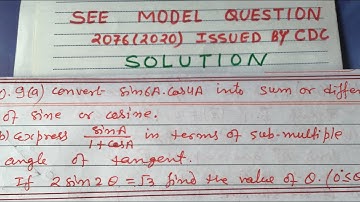 SEE MODEL QUESTION
2076(2020) ISSUED BY CDC
SOLUTION
Q. 9(a) Convert sin6A.cos4A into sum or differ
of sine or cosine.
b) Express sinA/1+cosA in terms of sub-multiple
angle of tangent.
If 2 sin2θ = √3 find the value of θ. (0≤θ